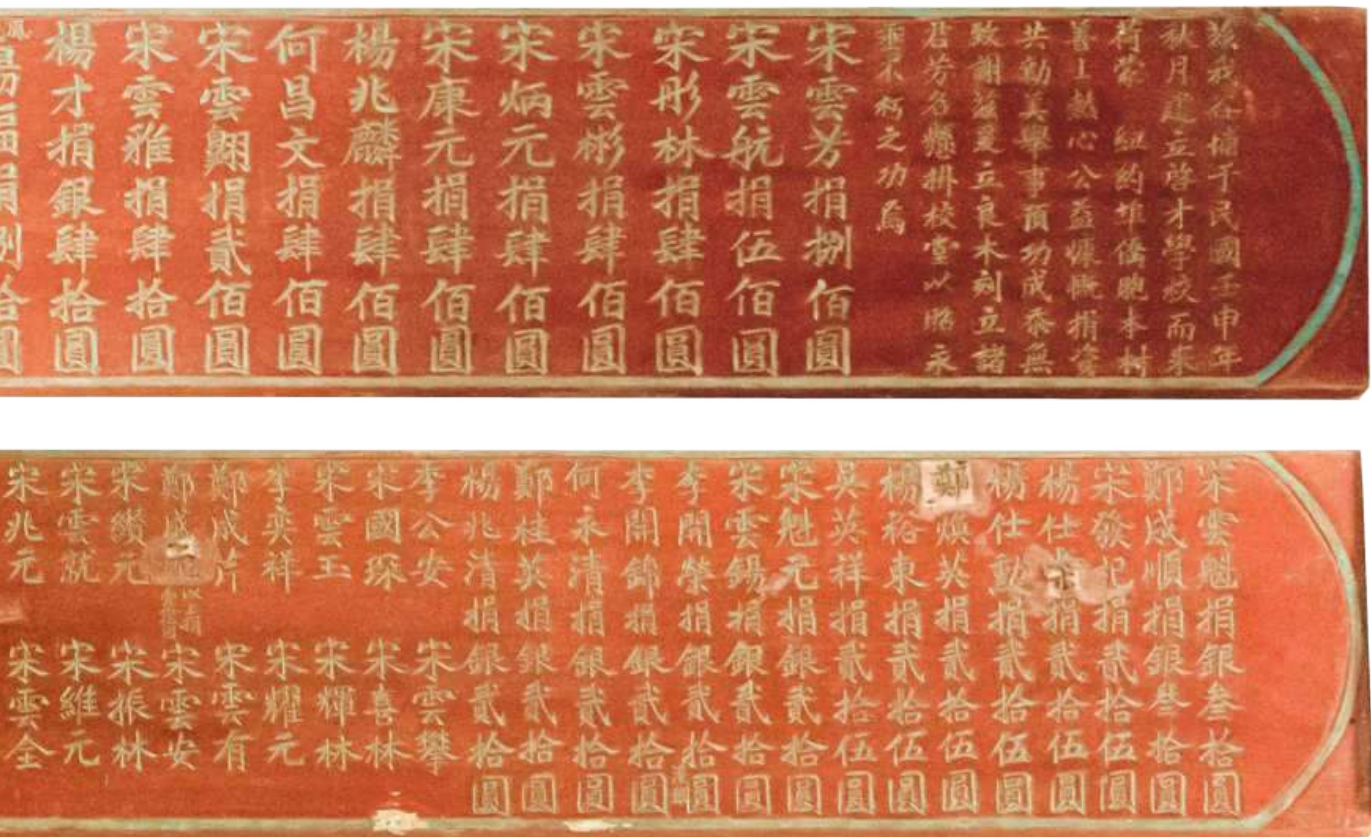 茲我谷埔于民國壬申年
秋月建立啓才學校而來
荷蒙 紐約埠僑胞本村
善士熱心公益慷慨捐資
共勷美舉事頂功成忝無
致謝茲爰立良木刻立諸
君芳名懸掛校堂以昭永
垂不朽之功焉
宋雲芳捐捌佰圓
宋雲航捐伍佰圓
宋彤林捐肆佰圓
宋雲彬捐肆佰圓
宋炳元捐肆佰圓
宋康元捐肆佰圓
楊兆麟捐肆佰圓
何昌文捐肆佰圓
宋雲翺捐貳佰圓
宋雲雅捐肆拾圓
楊才捐銀肆拾圓
宋雲魁捐銀叁拾圓
鄭成順捐銀叁拾圓
宋發記捐貳拾伍圓
楊仕捐貳拾伍圓
楊仕勳捐貳拾伍圓
鄭煥英捐貳拾伍圓
楊裕東捐貳拾伍圓
吳英祥捐貳拾伍圓
宋魁元捐銀貳拾圓
宋雲錫捐銀貳拾圓
李開榮捐銀貳拾圓
李開錦捐銀貳拾圓
何永清捐銀貳拾圓
鄭桂英捐銀貳拾圓
楊兆清捐銀貳拾圓
李公安 宋雲攀
宋國琛 宋喜林
宋雲玉 宋輝林
李奕祥 宋耀元
鄭成片 宋雲有
鄭成 宋雲安
宋纘元 宋振林
宋雲就 宋維元
宋兆元 宋雲全